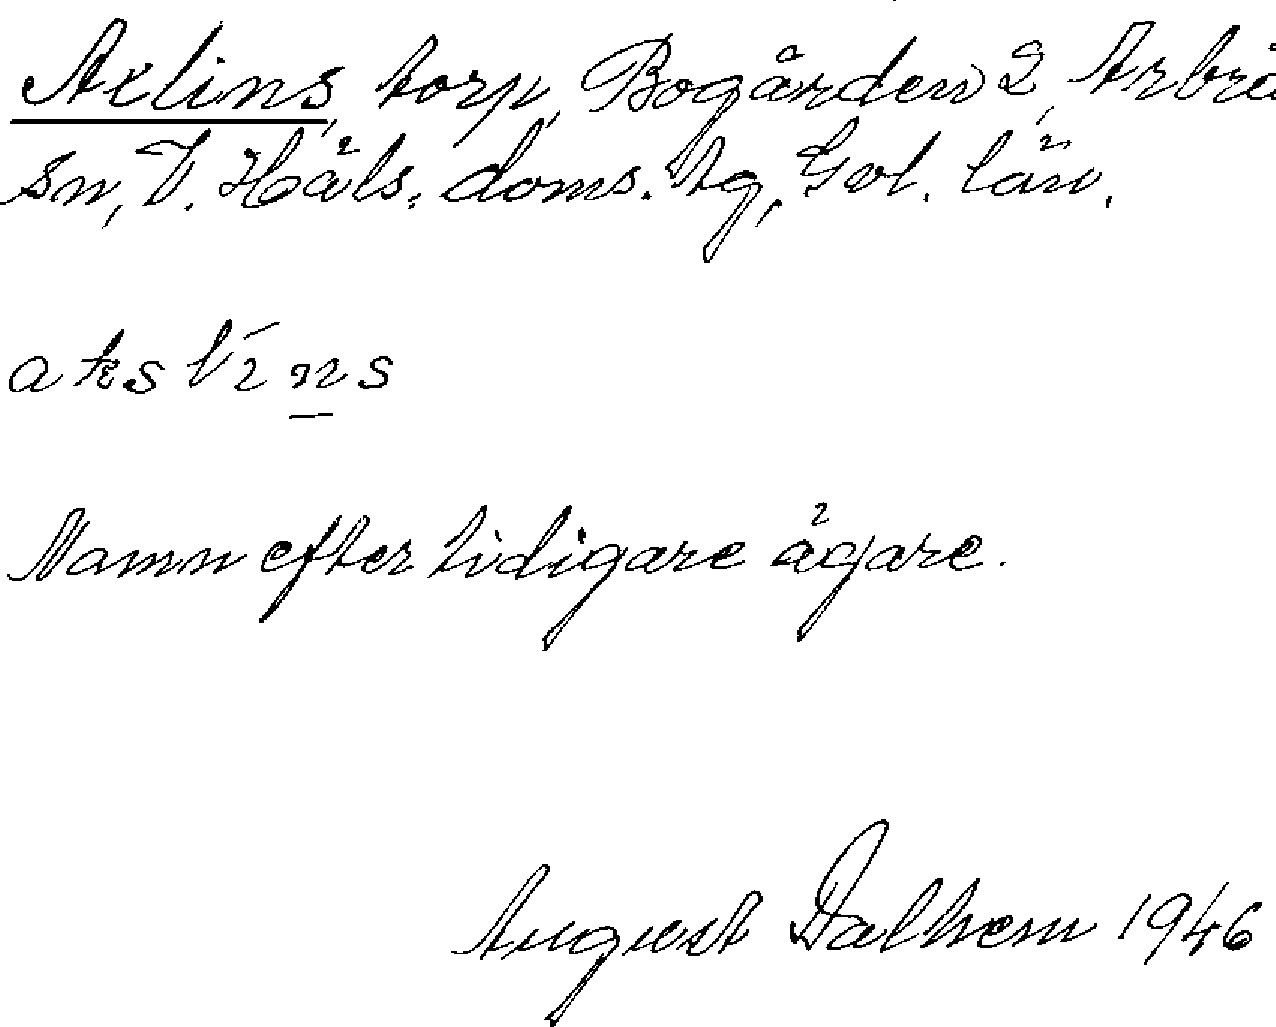 Axlins, torp, Bogården 2, Arbrå
sn, V. Häls. doms. tg, Gvl. län.
akslíns
Namn efter tidigare ägare.
August Dalhem 1946